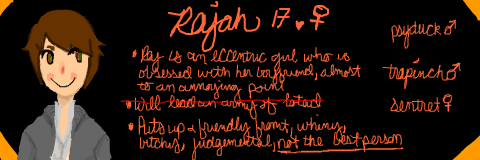 Rajah 17 ♥ ♀
• Raj is an eccentric girl who is
obsessed with her boyfriend, almost
to an annoying point
• Will lead an army of lotad
• Puts up a friendly front, whiny,
bitchy, judgemental, not the best person
psyduck ♂
trapinch ♂
sentret ♀